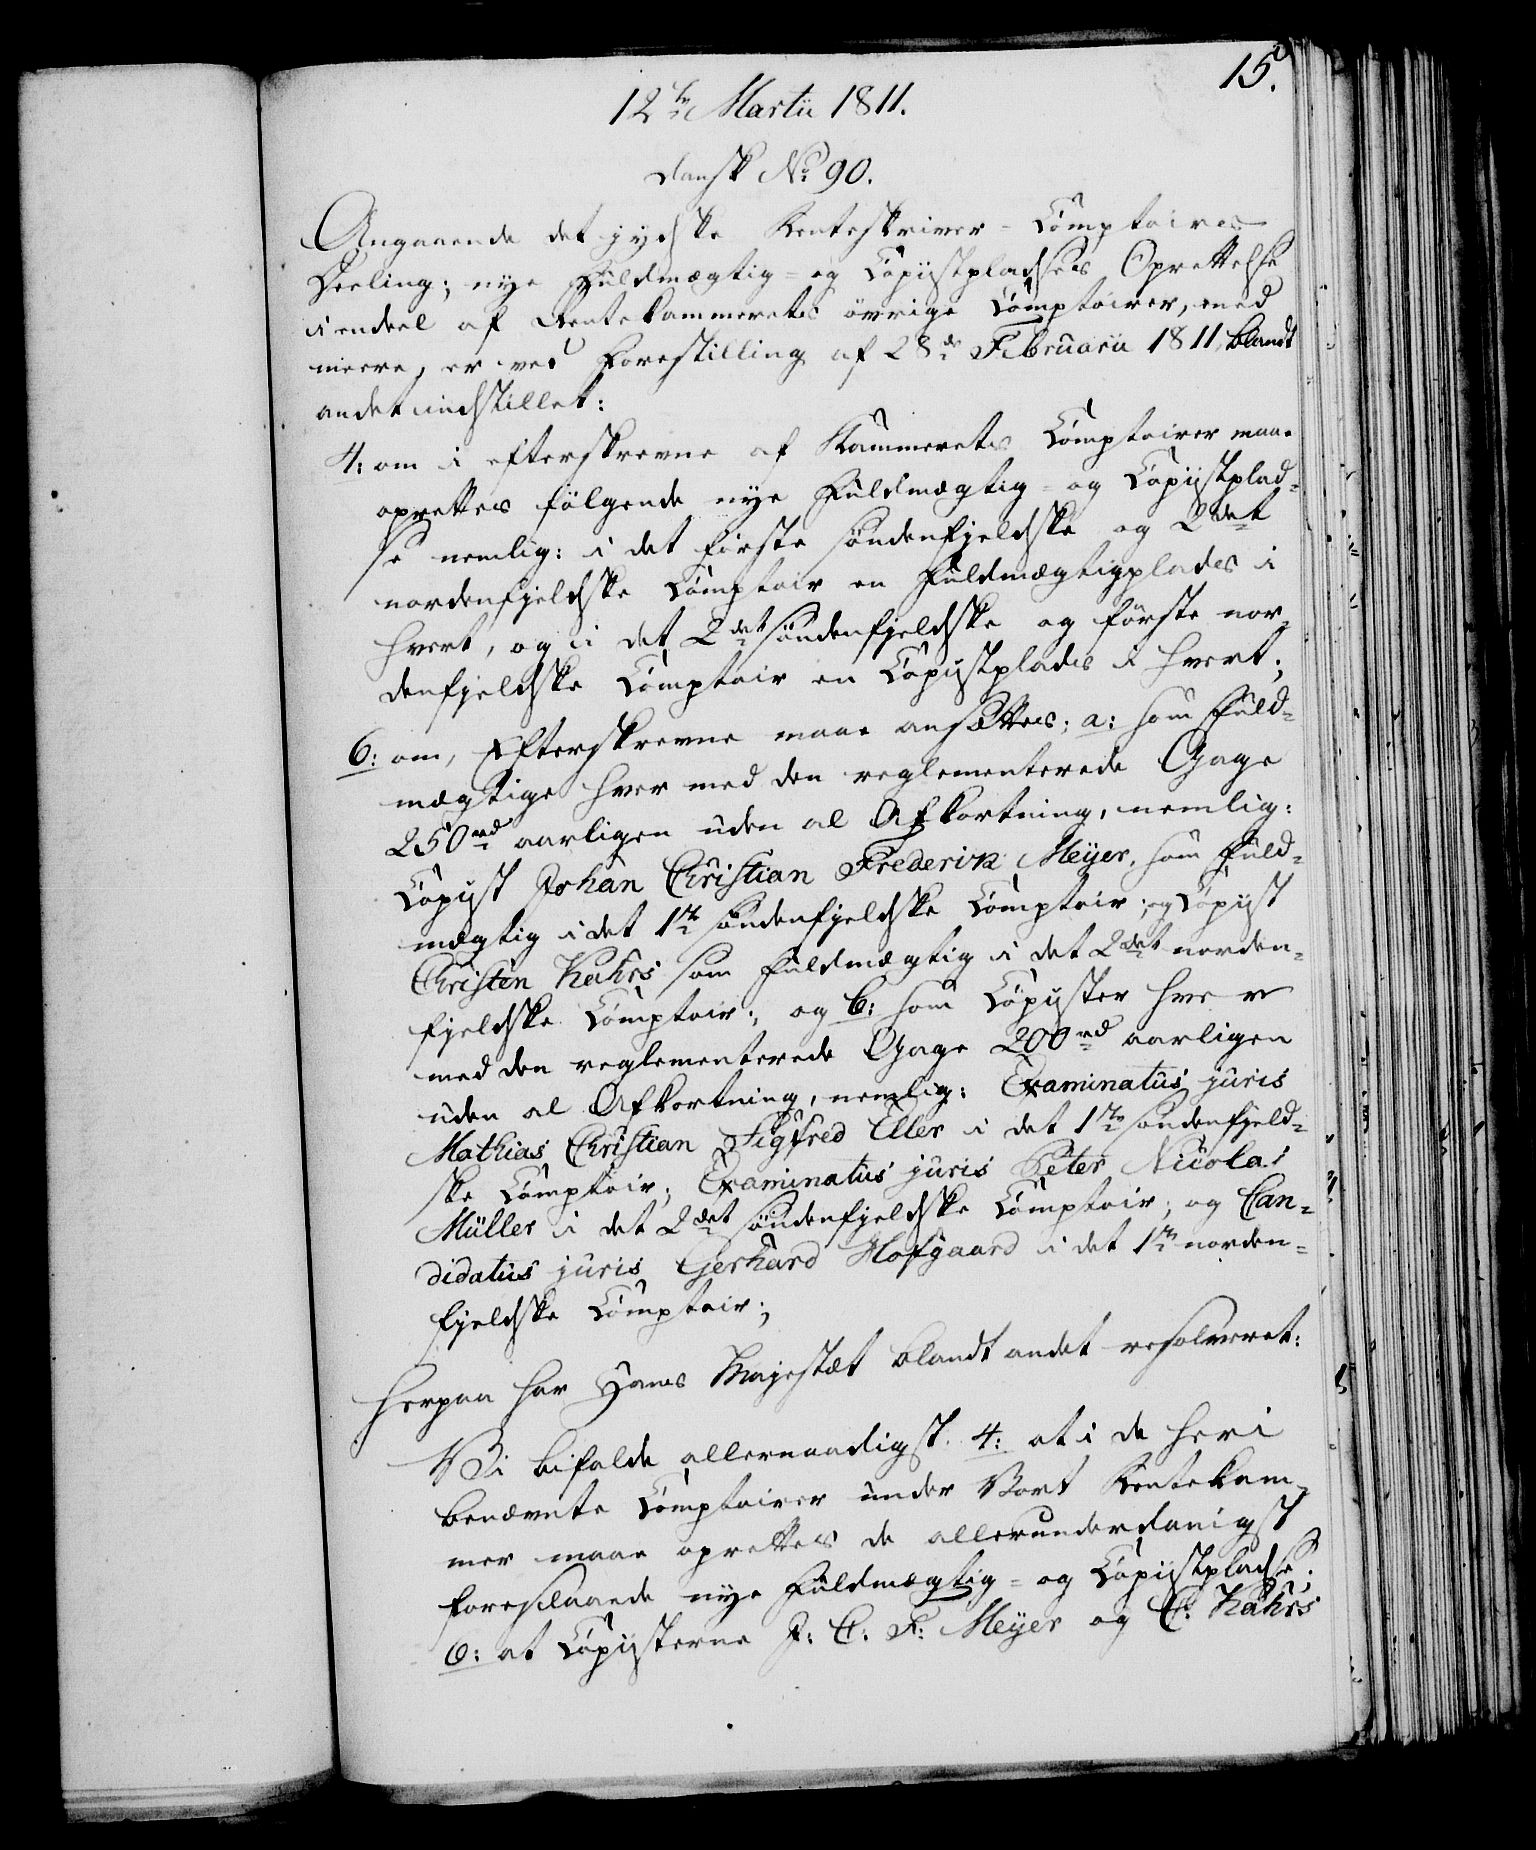 15.
12te Martii 1811.
dansk No 90.
Angaaende det jydske Renteskriver-Comptoires
Deeling; nye Fuldmægtig- og Copiistpladses Oprettelse
i endeel af Rentekammerets övrige Comptoirer, med
meere, er ved Forestilling af 28de Februarii 1811 blandt
andet indstillet:
4: om i efterskrevne af Kammerets Comptoirer maae
oprettes fölgende nye Fuldmægtig- og Copiistplad-
se nemlig: i det förste söndenfjeldske og 2det
nordenfjeldske Comptoir en Fuldmægtigplads i
hvert, og i det 2det söndenfjeldske og förste nor-
denfjeldske Comptoir en Copiistplads i hvert;
6: om, Efterskrevne maae ansættes; a: som Fuld-
mægtige hver med den reglementerede Gage
250rd aarligen uden al Afkortning, nemlig:
Copiist Johan Christian Frederik Meyer, som Fuld-
mægtig i det 1te söndenfjeldske Comptoir; og Copiist
Christen Kahrs som Fuldmægtig i det 2det norden-
fjeldske Comptoir; og b: som Copiister hver
med den reglementerede Gage 200rd aarligen
uden al Afkortning, nemlig: Examinatus juris
Mathias Christian Sigfred Eller i det 1te söndenfjeld-
ske Comptoir; Examinatus juris Peter Nicolai
Müller i det 2det söndenfjeldske Comptoir; og Can-
didatus juris Gerhard Hofgaard i det 1te norden-
fjeldske Comptoir;
Herpaa har Hans Majestæt blandt andet resolveret:
Vi bifalde allernaadigst. 4: at i de heri
benævnte Comptoirer under Vort Rentekam-
mer maae oprettes de allerunderdanigst
foreslaaede nye Fuldmægtig- og Copiistpladse;
6: at Copiisterne J: C: F: Meyer og C: Kahrs